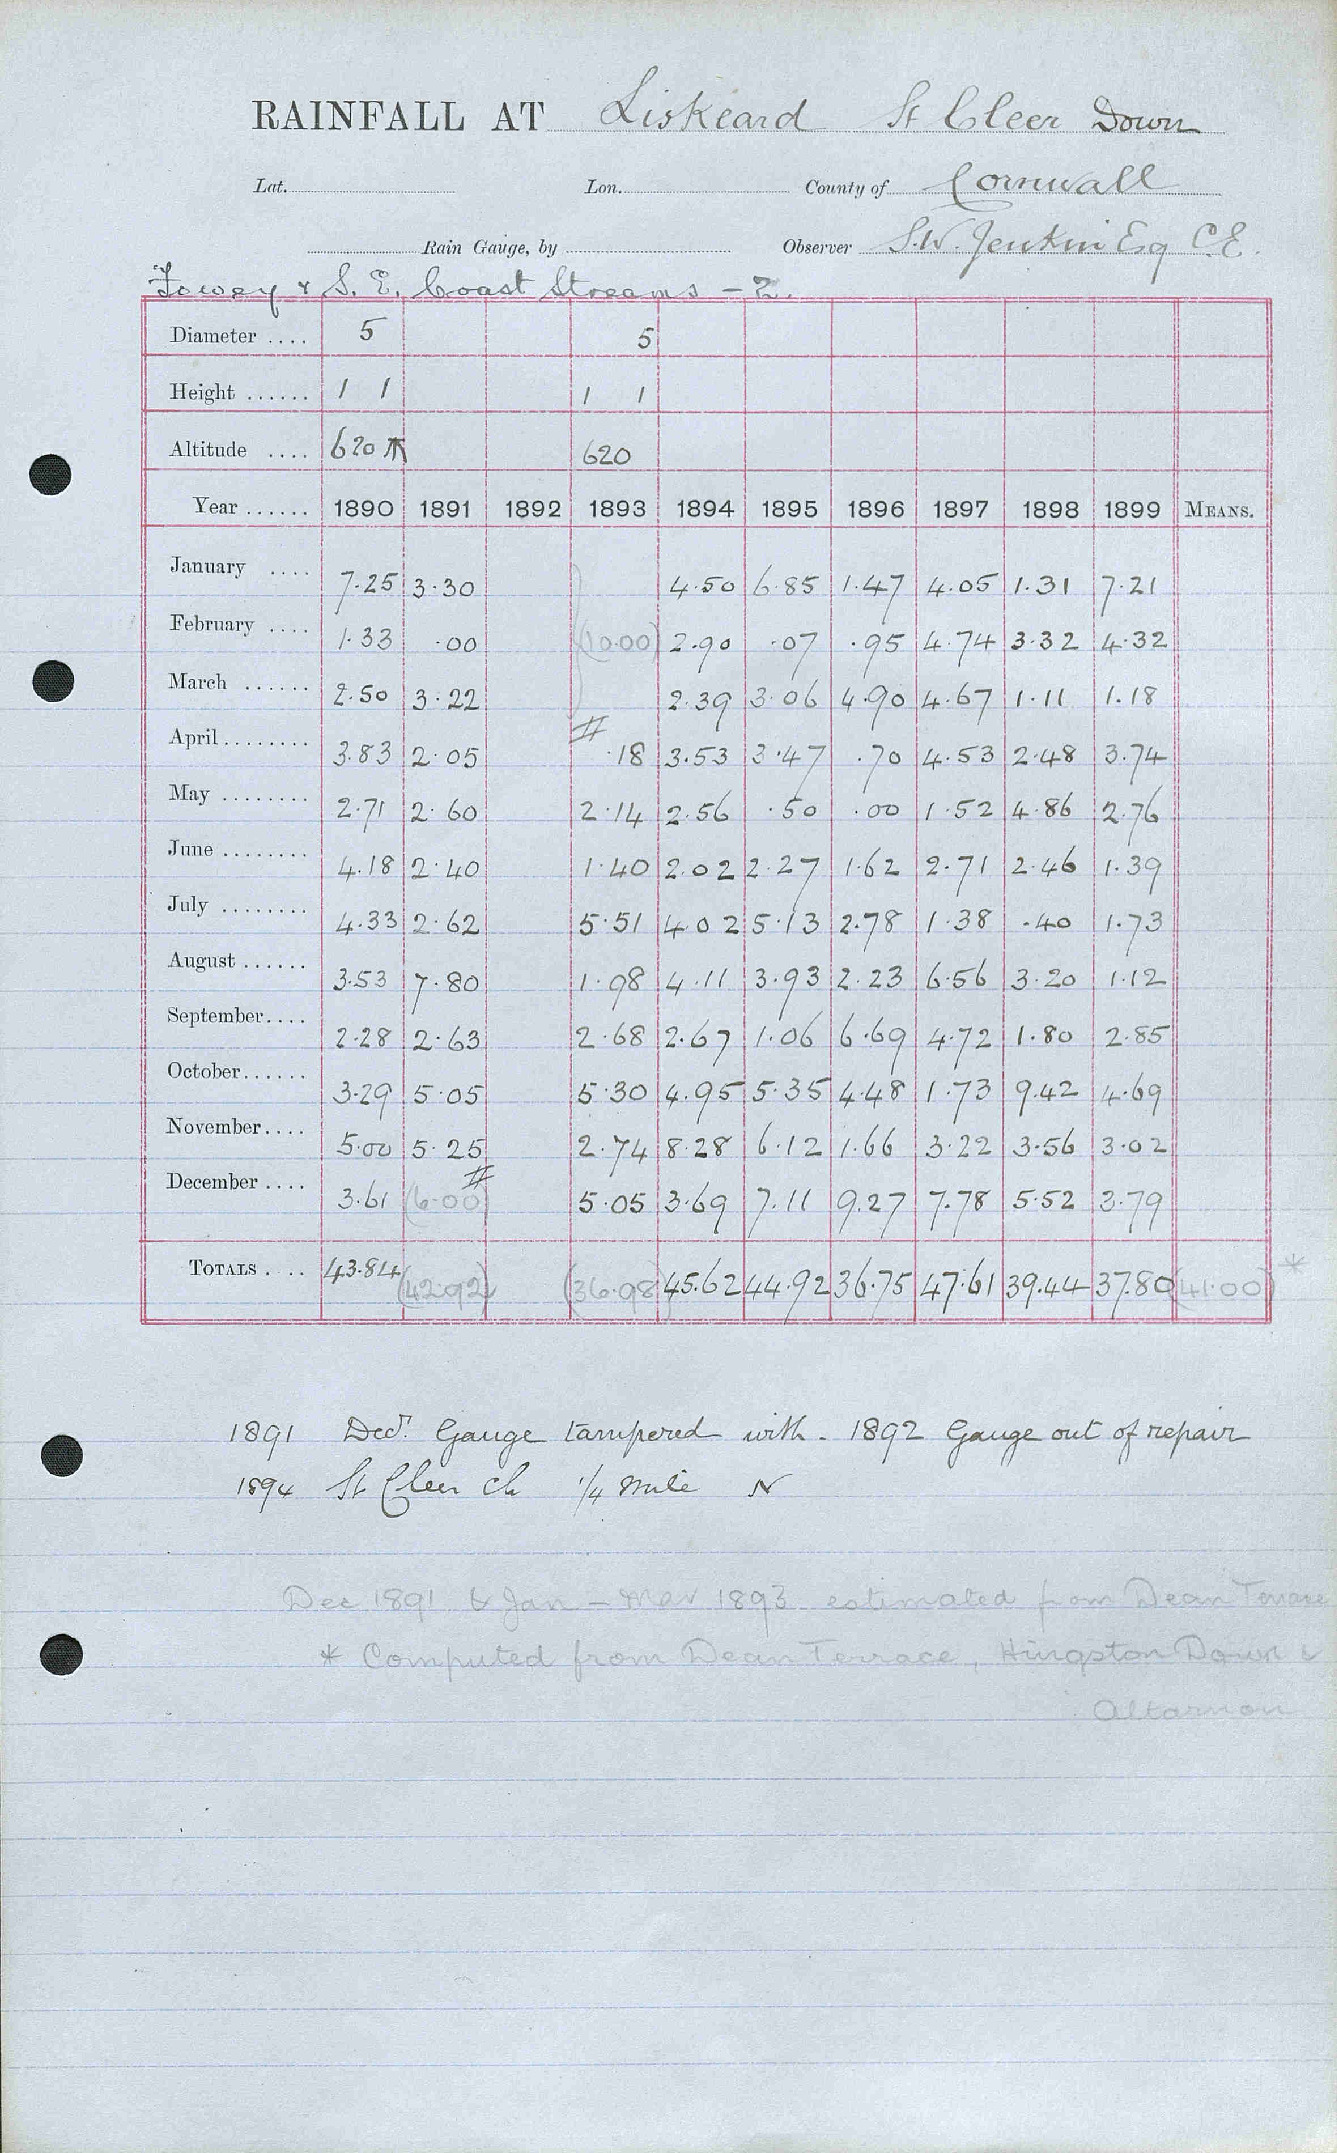 RAINFALL AT Liskeard St Cleer Down
Lat. Lon. County of Cornwall
Rain Gauge, by Observer S.W. Jenkin Esq C.E.
Fowey & S. E. Coast Streams - 2.
Diameter .... 5 5
Height ...... 1 1 1 1
Altitude .... 620 620
Year ...... 1890 1891 1892 1893 1894 1895 1896 1897 1898 1899 MEANS.
January .... 7.25 3.30 4.50 6.85 1.47 4.05 1.31 7.21
February .... 1.33 .00 (10.00) 2.90 .07 .95 4.74 3.32 4.32
March ...... 2.50 3.22 2.39 3.06 4.90 4.67 1.11 1.18
April ........ 3.83 2.05 # .18 3.53 3.47 .70 4.53 2.48 3.74
May ........ 2.71 2.60 2.14 2.56 .50 .00 1.52 4.86 2.76
June ........ 4.18 2.40 1.40 2.02 2.27 1.62 2.71 2.46 1.39
July ........ 4.33 2.62 5.51 4.02 5.13 2.78 1.38 .40 1.73
August ...... 3.53 7.80 1.98 4.11 3.93 2.23 6.56 3.20 1.12
September .... 2.28 2.63 2.68 2.67 1.06 6.69 4.72 1.80 2.85
October ...... 3.29 5.05 5.30 4.95 5.35 4.48 1.73 9.42 4.69
November .... 5.00 5.25 2.74 8.28 6.12 1.66 3.22 3.56 3.02
December .... 3.61 (6.00) # 5.05 3.69 7.11 9.27 7.78 5.52 3.79
TOTALS .... 43.84 (42.92) (36.98) 45.62 44.92 36.75 47.61 39.44 37.80 (41.00) *
1891 Decr. Gauge tampered with. 1892 Gauge out of repair
1894 St Cleer ch 1/4 mile N
Dec 1891 & Jan - Mar 1893 estimated from Dean Terrace
* Computed from Dean Terrace, Hingston Down &
Altarnon